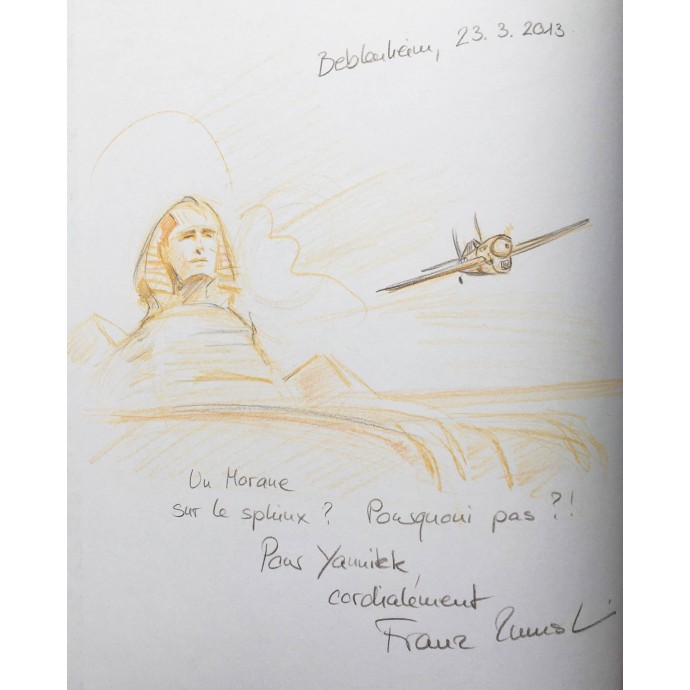 Beblenheim, 23. 3. 2013
Un Morane
sur le sphinx ? Pourquoui pas ?!
Pour Yannikk,
cordialément
Franz Zumst